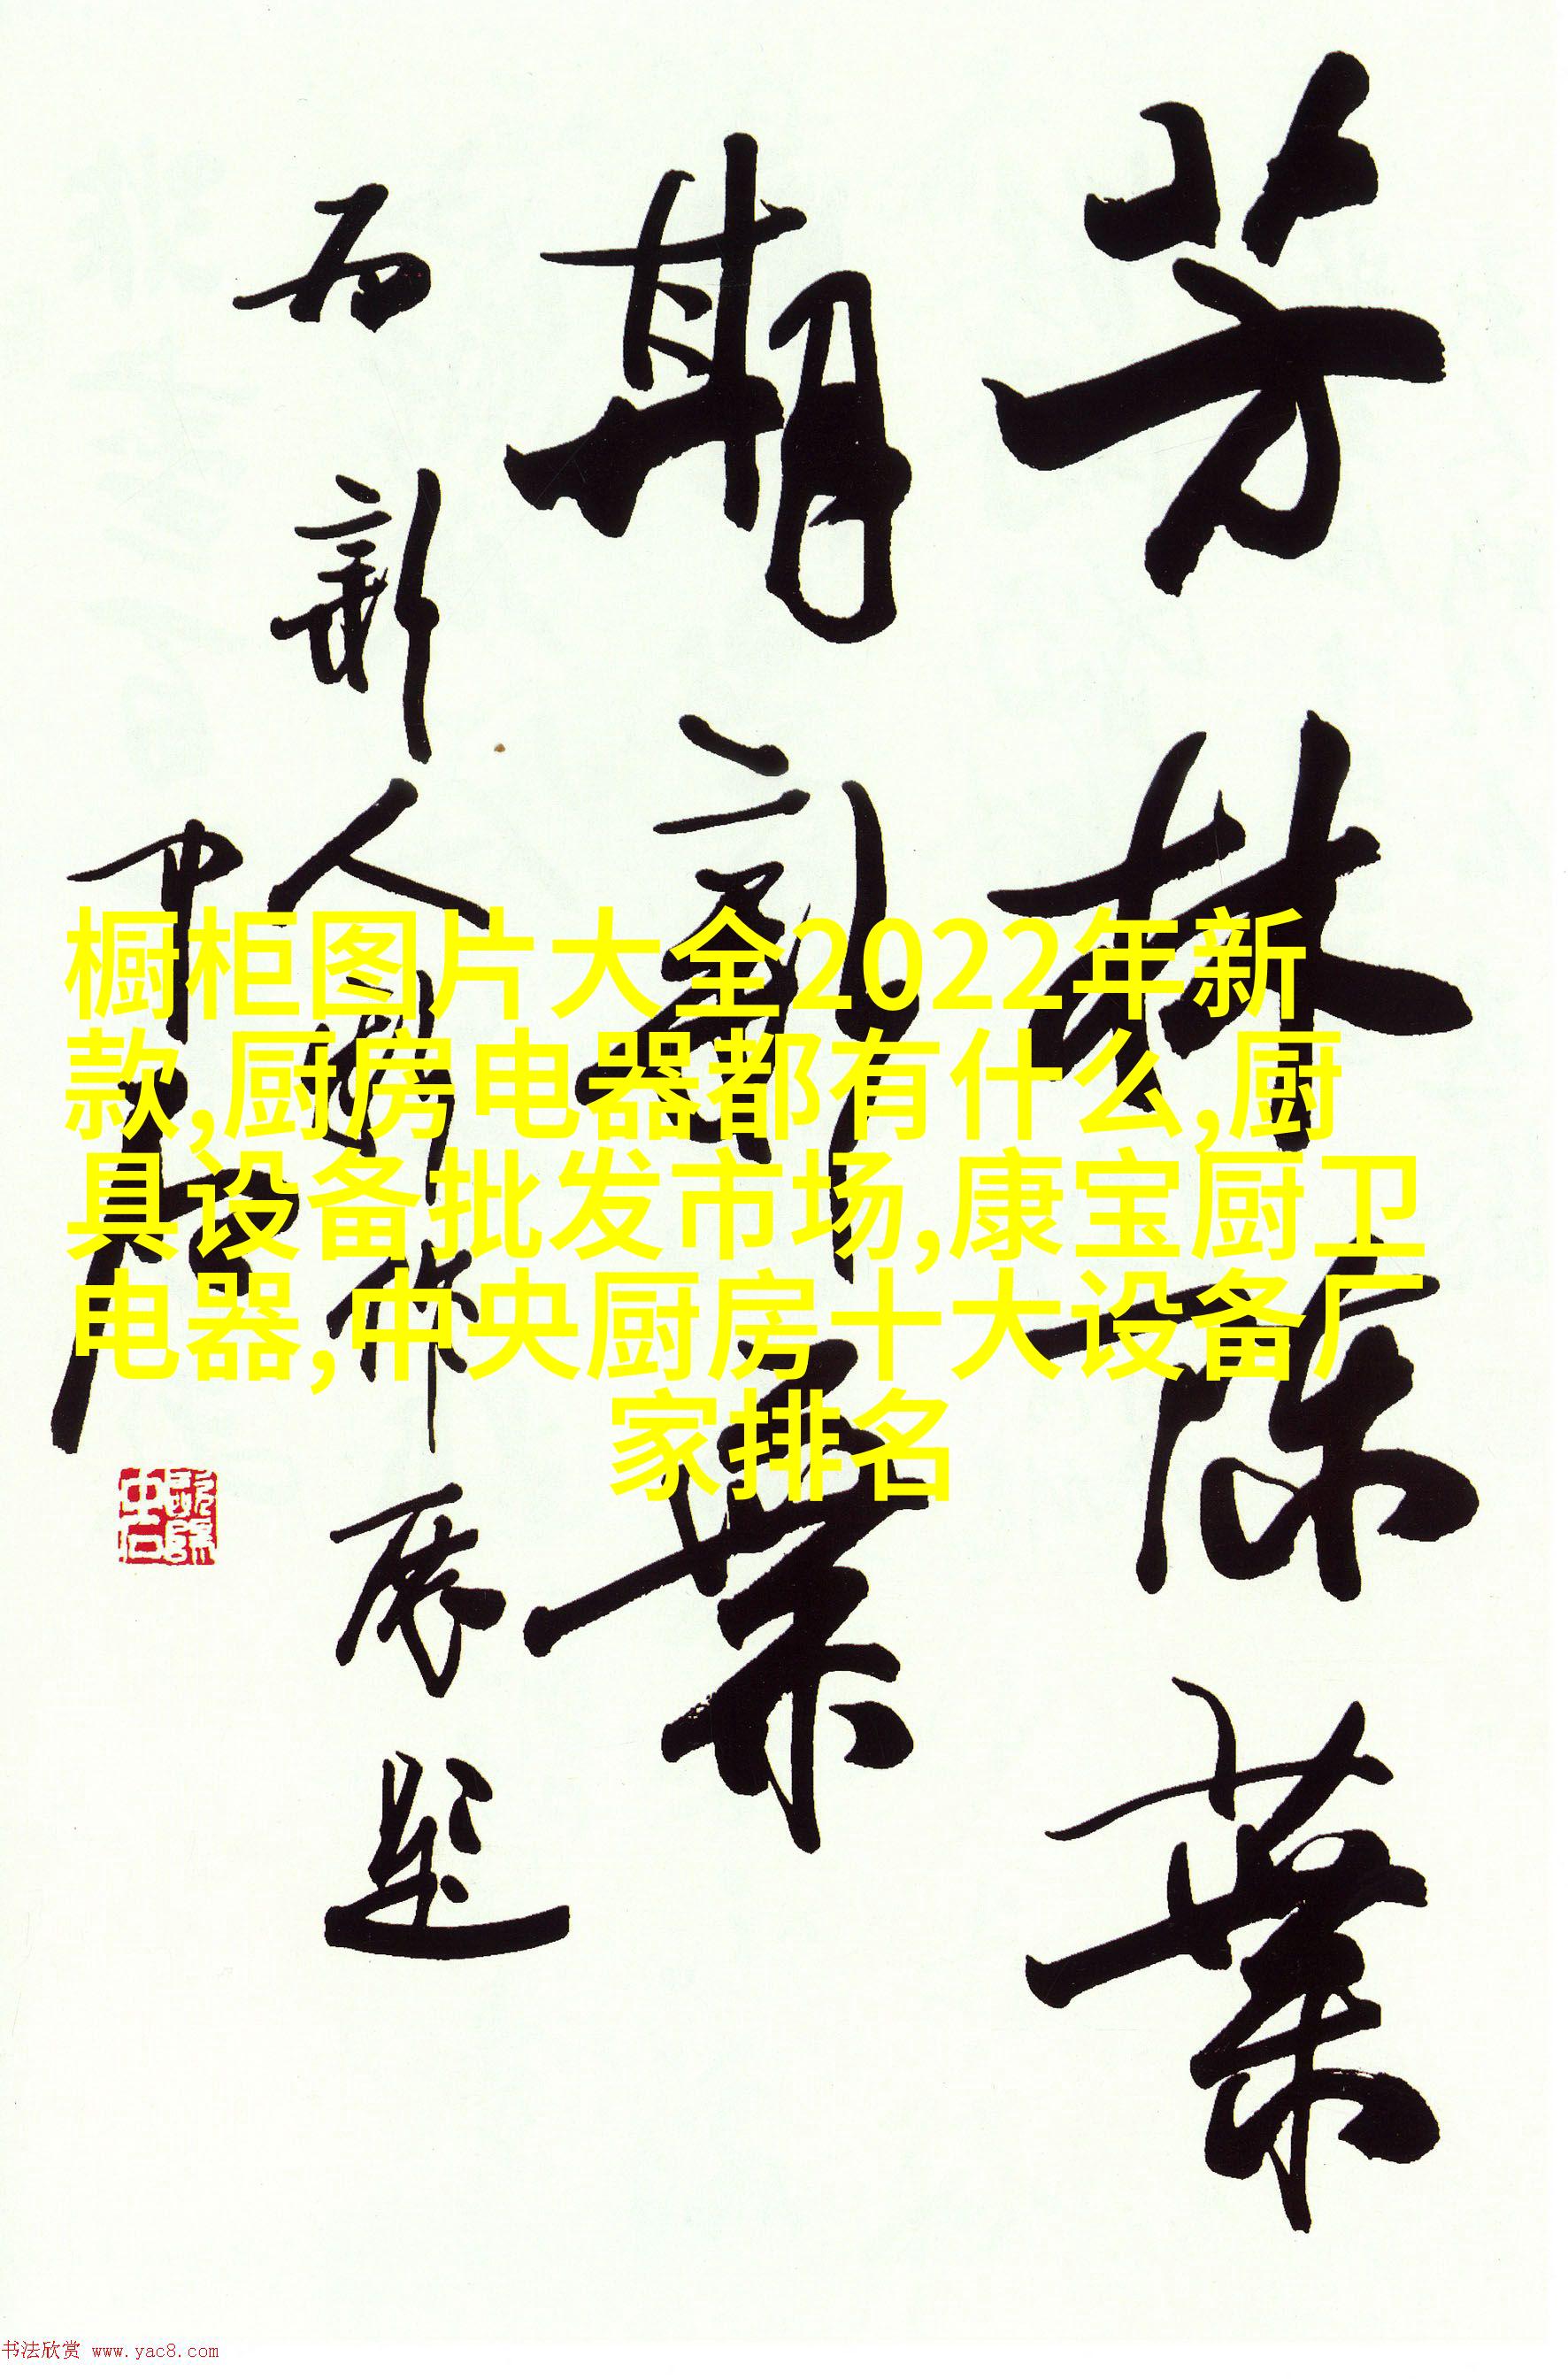 芳林陈葉
期新葉
为新人新作展题
中石
橱柜图片大全2022年新
款,厨房电器都有什么,厨
具设备批发市场,康宝厨卫
电器,中央厨房十大设备厂
家排名
书法欣赏 www.yac8.com